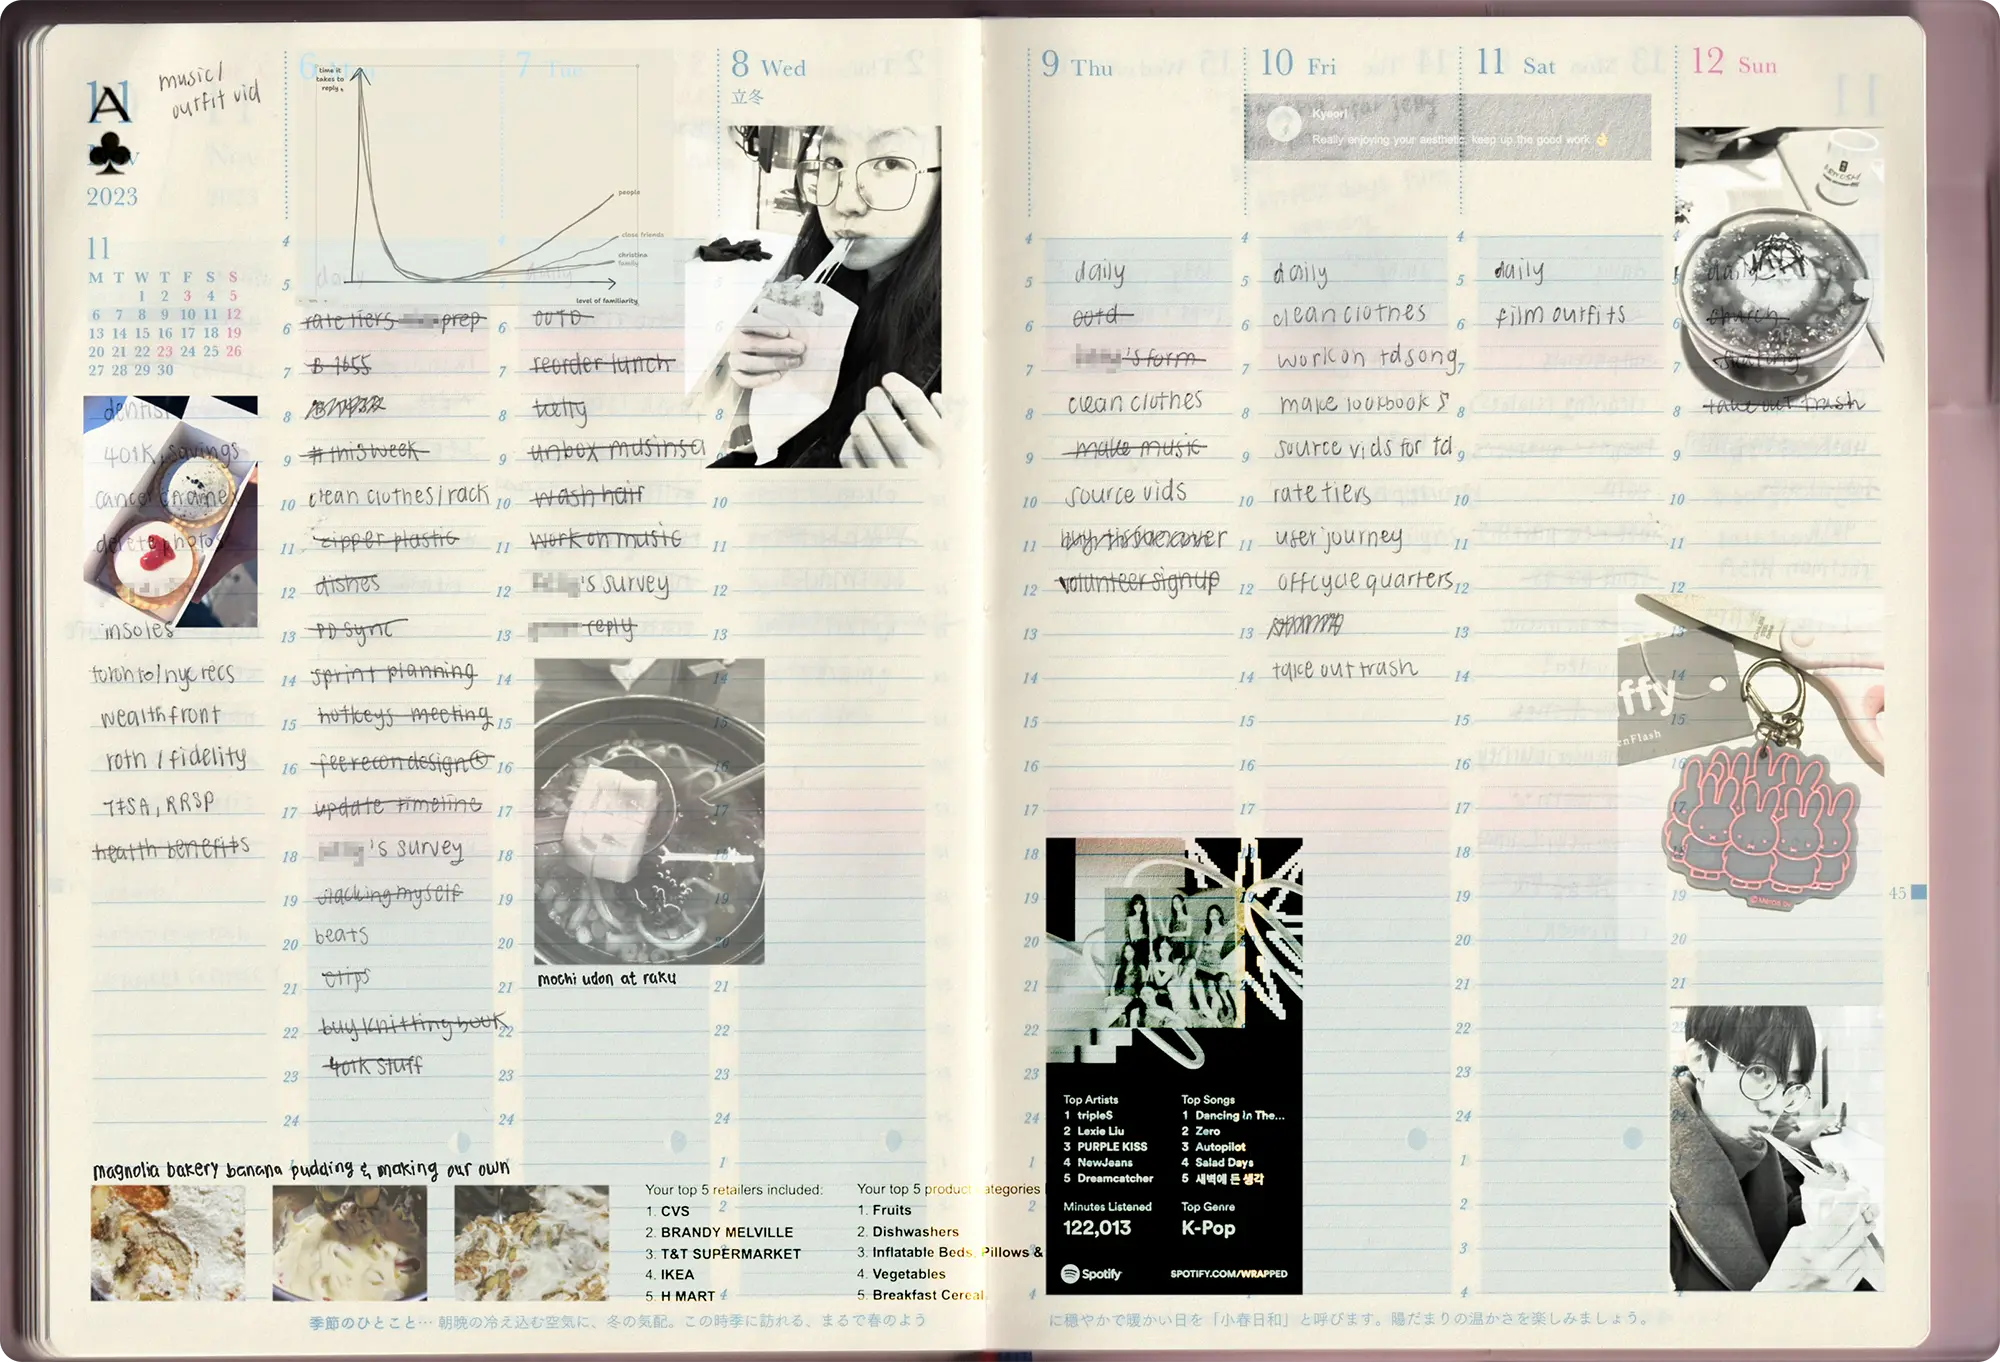 11
A
Nov
2023
music/
outfit vid
11
M T W T F S S
1 2 3 4 5
6 7 8 9 10 11 12
13 14 15 16 17 18 19
20 21 22 23 24 25 26
27 28 29 30
dentist
401K, savings
cancel cname
delete photos
insoles
toronto/nyc recs
wealthfront
roth / fidelity
TFSA, RRSP
health benefits
6 Mon
time it
takes to
reply
people
close friends
christina
family
level of familiarity
daily
rate tiers prep
B 1655
#thisweek
clean clothes/rack
zipper plastic
dishes
PD sync
sprint planning
hotkeys meeting
feerecon design
update timeline
's survey
slacking myself
beats
clips
buy knitting book
401k stuff
7 Tue
daily
OOTD
reorder lunch
tally
unbox musinsa
wash hair
work on music
's survey
reply
mochi udon at raku
8 Wed
立冬
magnolia bakery banana pudding & making our own
Your top 5 retailers included:
1. CVS
2. BRANDY MELVILLE
3. T&T SUPERMARKET
4. IKEA
5. H MART
Your top 5 product categories
1. Fruits
2. Dishwashers
3. Inflatable Beds, Pillows &
4. Vegetables
5. Breakfast Cereal
季節のひとこと… 朝晩の冷え込む空気に、冬の気配。この時季に訪れる、まるで春のよう
9 Thu
daily
ootd
's form
clean clothes
make music
source vids
buy tissue cover
volunteer signup
Top Artists
1 tripleS
2 Lexie Liu
3 PURPLE KISS
4 NewJeans
5 Dreamcatcher
Top Songs
1 Dancing In The...
2 Zero
3 Autopilot
4 Salad Days
5 새벽에 든 생각
Minutes Listened
122,013
Top Genre
K-Pop
Spotify
SPOTIFY.COM/WRAPPED
10 Fri
Kyoori
Really enjoying your aesthetic, keep up the good work 👌
daily
clean clothes
work on td song
make lookbook
source vids for td
rate tiers
user journey
offcycle quarters
take out trash
11 Sat
daily
film outfits
12 Sun
daily
church
skating
take out trash
ffy
enFlash
45
に穏やかで暖かい日を「小春日和」と呼びます。陽だまりの温かさを楽しみましょう。